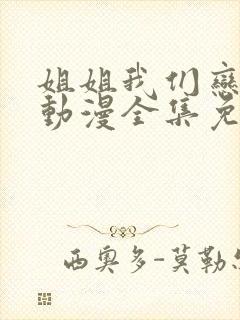 姐姐我们戀
動漫全集免
西奥多-莫勒